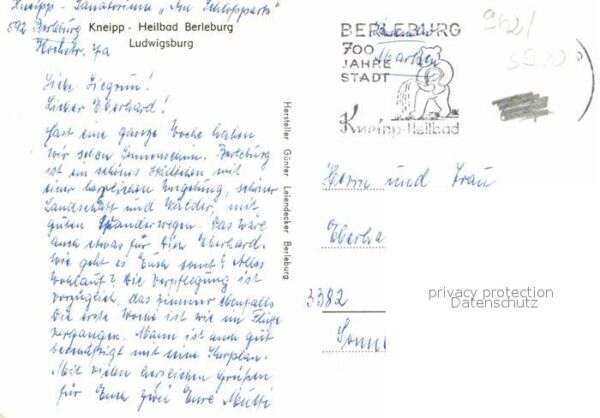 Kneipp - Sanatorium "Am Schloßpark"
592 Berleburg
Hochstr. 7a
Kneipp - Heilbad Berleburg
Ludwigsburg
Liebe Siegrun!
Lieber Eberhard!
Fast eine ganze Woche haben
wir schon Sonnenschein. Berleburg
ist ein schönes Städtchen mit
einer herrlichen Umgebung, schöner
Landschaft und Wälder mit
guten Wanderwegen. Das wäre
auch etwas für Dich Eberhard.
Wie geht es Euch sonst? Alles
wohlauf? Die Verpflegung ist
vorzüglich, das Zimmer ebenfalls
Die erste Woche ist wie im Fluge
vergangen. Mann ist auch gut
beschäftigt mit seine Kurplan.
Mit vielen herzlichen Grüßen
für Euch zwei Eure Mutti
Hersteller Günter Leiendecker Berleburg
BERLEBURG
700
JAHRE
STADT
Kneipp-Heilbad
962/
Herrn und Frau
Eberha
3382
privacy protection
Datenschutz